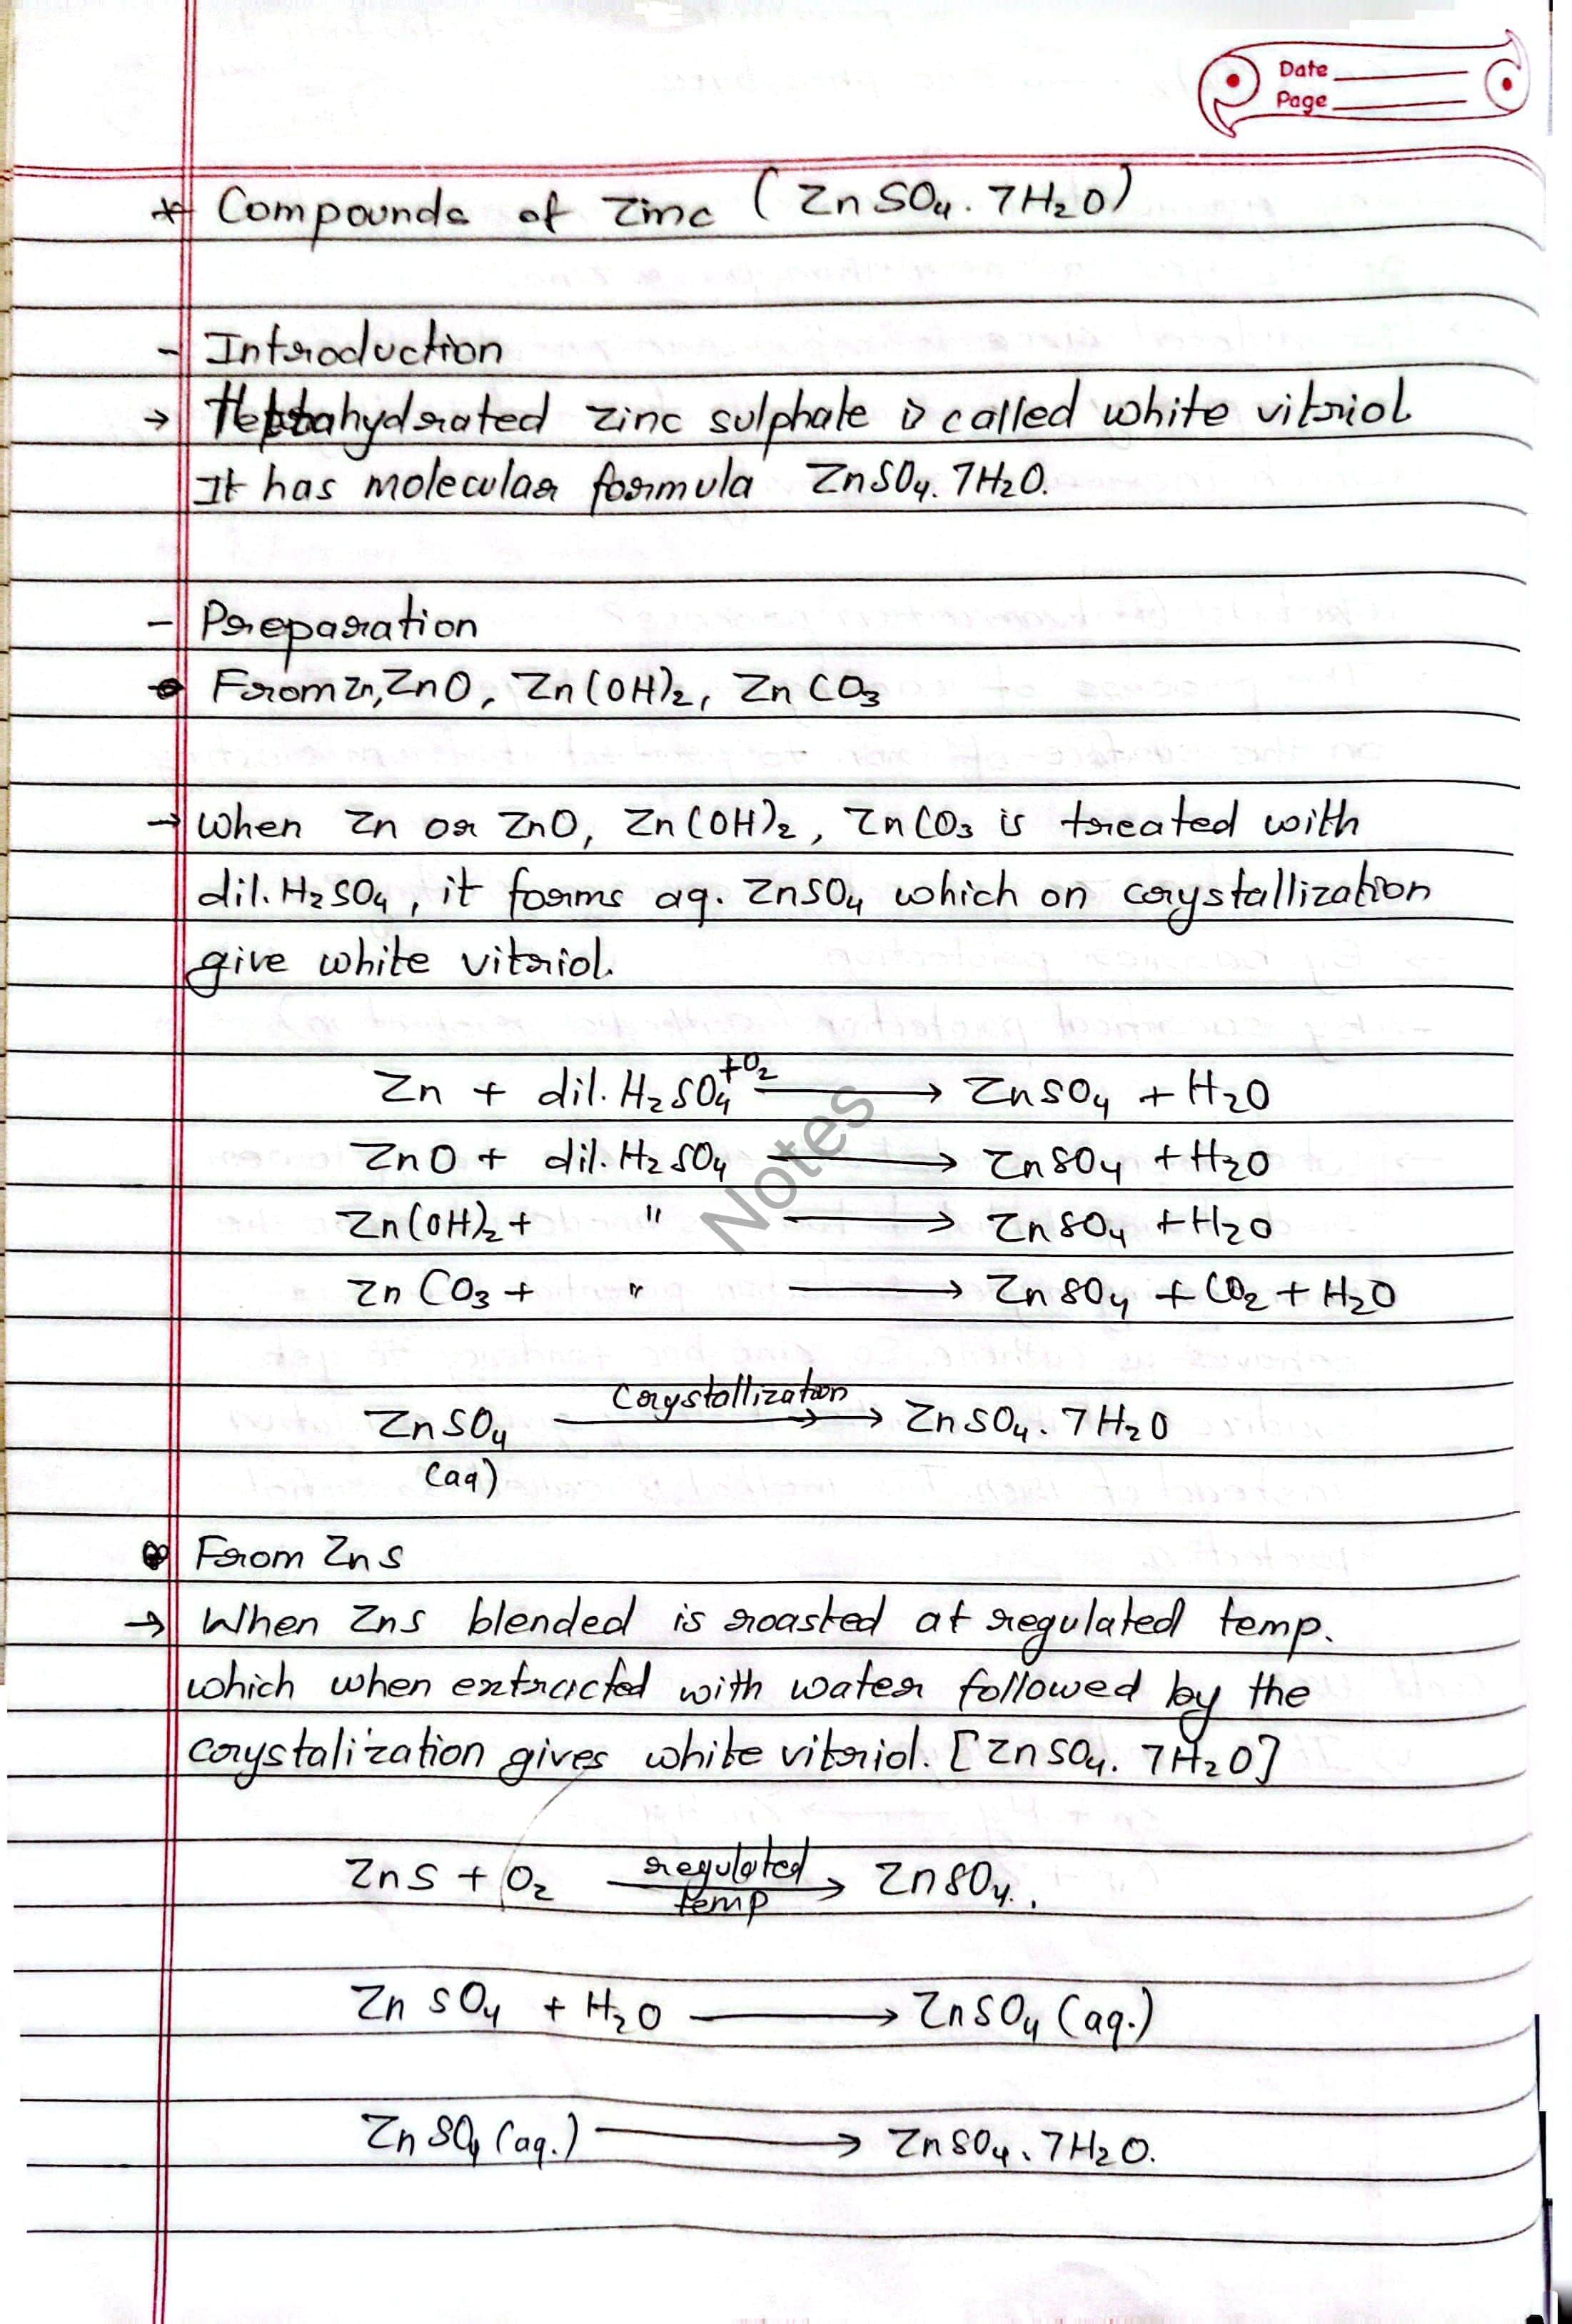 Date
Page
* Compounds of Zinc (ZnSO₄. 7H₂O)
- Introduction
→ Heptahydrated zinc sulphate is called white vitriol.
It has molecular formula ZnSO₄. 7H₂O.
- Preparation
• From Zn, ZnO, Zn(OH)₂, ZnCO₃
→ When Zn or ZnO, Zn(OH)₂, ZnCO₃ is treated with
dil. H₂SO₄, it forms aq. ZnSO₄ which on crystallization
give white vitriol.
Zn + dil. H₂SO₄ +O₂ ⟶ ZnSO₄ + H₂O
ZnO + dil. H₂SO₄ ⟶ ZnSO₄ + H₂O
Zn(OH)₂ + " ⟶ ZnSO₄ + H₂O
ZnCO₃ + " ⟶ ZnSO₄ + CO₂ + H₂O
Notes
crystallization
ZnSO₄ ⟶ ZnSO₄. 7H₂O
(aq)
• From ZnS
→ When ZnS blended is roasted at regulated temp.
which when extracted with water followed by the
crystalization gives white vitriol. [ZnSO₄. 7H₂O]
regulated
ZnS + O₂ ⟶ ZnSO₄.
temp
ZnSO₄ + H₂O ⟶ ZnSO₄ (aq.)
ZnSO₄ (aq.) ⟶ ZnSO₄. 7H₂O.